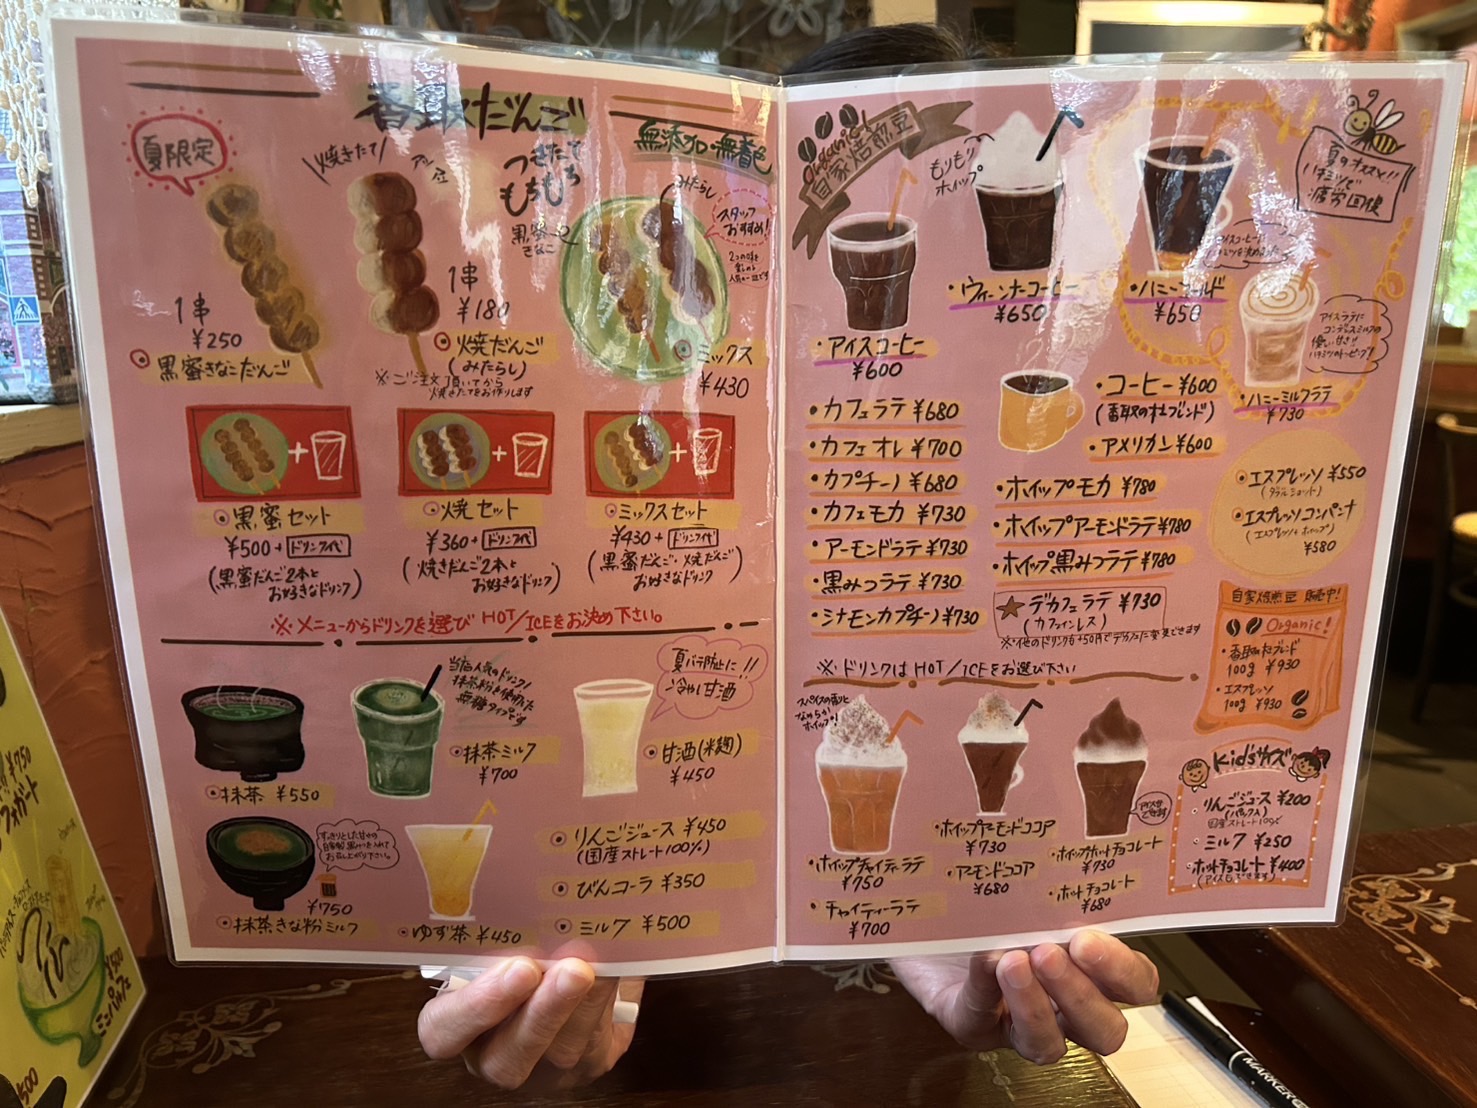 香取だんご
無添加・無着色
夏限定
焼きたて
アツ
つきたて
もちもち
黒蜜
きなこ
みたらし
スタッフ
おすすめ!
1串
¥250
黒蜜きなこだんご
1串
¥180
焼だんご
(みたらし)
※ご注文頂いてから
焼きたてをお作りします
ミックス
¥430
黒蜜セット
¥500+ドリンク代
(黒蜜だんご2本と
お好きなドリンク)
焼セット
¥360+ドリンク代
(焼きだんご2本と
お好きなドリンク)
ミックスセット
¥430+ドリンク代
(黒蜜だんご・焼だんごと
お好きなドリンク)
※メニューからドリンクを選び HOT/ICEをお決め下さい。
抹茶 ¥550
当店人気のドリンク!
抹茶粉を使用した
無糖タイプです
抹茶ミルク
¥700
夏バテ防止に!!
冷やし甘酒
甘酒(米麹)
¥450
¥750
抹茶きな粉ミルク
ゆず茶 ¥450
りんごジュース ¥450
(国産ストレート100%)
びんコーラ ¥350
ミルク ¥500
Organic!
自家焙煎豆
もりもり
ホイップ
アイスコーヒー
¥600
ウィーンナーコーヒー
¥650
ハニーゴールド
¥650
夏のオススメ!!
ハチミツで
疲労回復
アイスラテに
コンデンスミルクの
優しい甘さ!!
ハニーミルクラテ
¥730
カフェラテ ¥680
カフェオレ ¥700
カプチーノ ¥680
カフェモカ ¥730
アーモンドラテ ¥730
黒みつラテ ¥730
シナモンカプチーノ ¥730
コーヒー ¥600
(香取の杜ブレンド)
アメリカン ¥600
ホイップモカ ¥780
ホイップアーモンドラテ ¥780
ホイップ黒みつラテ ¥780
★デカフェラテ ¥730
(カフェインレス)
※他のドリンクも+50円でデカフェに変更できます
エスプレッソ ¥550
(ダブルショット)
エスプレッソコンパンナ
(エスプレッソ+ホイップ)
¥580
自家焙煎豆 販売中!
Organic!
香取の杜ブレンド
100g ¥930
エスプレッソ
100g ¥930
※ドリンクは HOT/ICEをお選び下さい
スパイスの香りと
なめらか
ホイップ!
ホイップチャイティーラテ
¥750
チャイティーラテ
¥700
ホイップアーモンドココア
¥730
アーモンドココア
¥680
アイスも
できます
ホイップホットチョコレート
¥730
ホットチョコレート
¥680
Kid'sサイズ
りんごジュース ¥200
(パック入)
国産ストレート100%
ミルク ¥250
ホットチョコレート ¥400
(アイスもできます)
¥750
フォガート
¥500
ミニパルフェ
MARKER